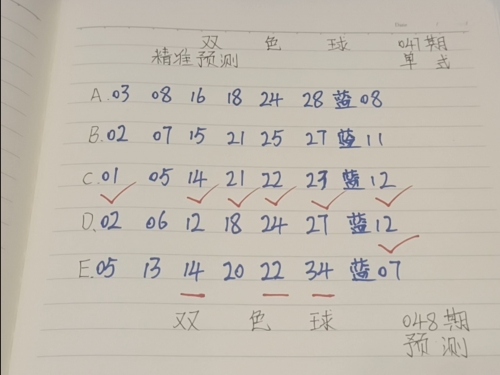 双 色 球 047期
精准预测 单式
A.03 08 16 18 24 28 蓝08
B.02 07 15 21 25 27 蓝11
C.01 05 14 21 22 23 蓝12
D.02 06 12 18 24 27 蓝12
E.05 13 14 20 22 34 蓝07
双 色 球 048期
预测